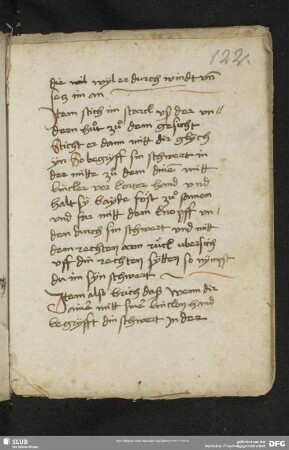 122.
die wil wyl er durch windt vñ
setz im an
Item stich im starck vß der vn
dern hůt zů dem gesicht
Sticht er dann mitt dir glych
yn So begryff sin schwert in
der mitte zů dem dinē mitt
lincker vor lorter hand vnd
halt sy bayde föst zů samen
vnd far mitt dem knopff vn
den durch sin schwert vnd mitt
dem rechten arm rück vbersich
vff din rechten sytten so nympst
du im syn schwert
Item also brich daß wenn dir
ainer mitt siner lincken hand
begryfft din schwert in der
SLUB
DFG